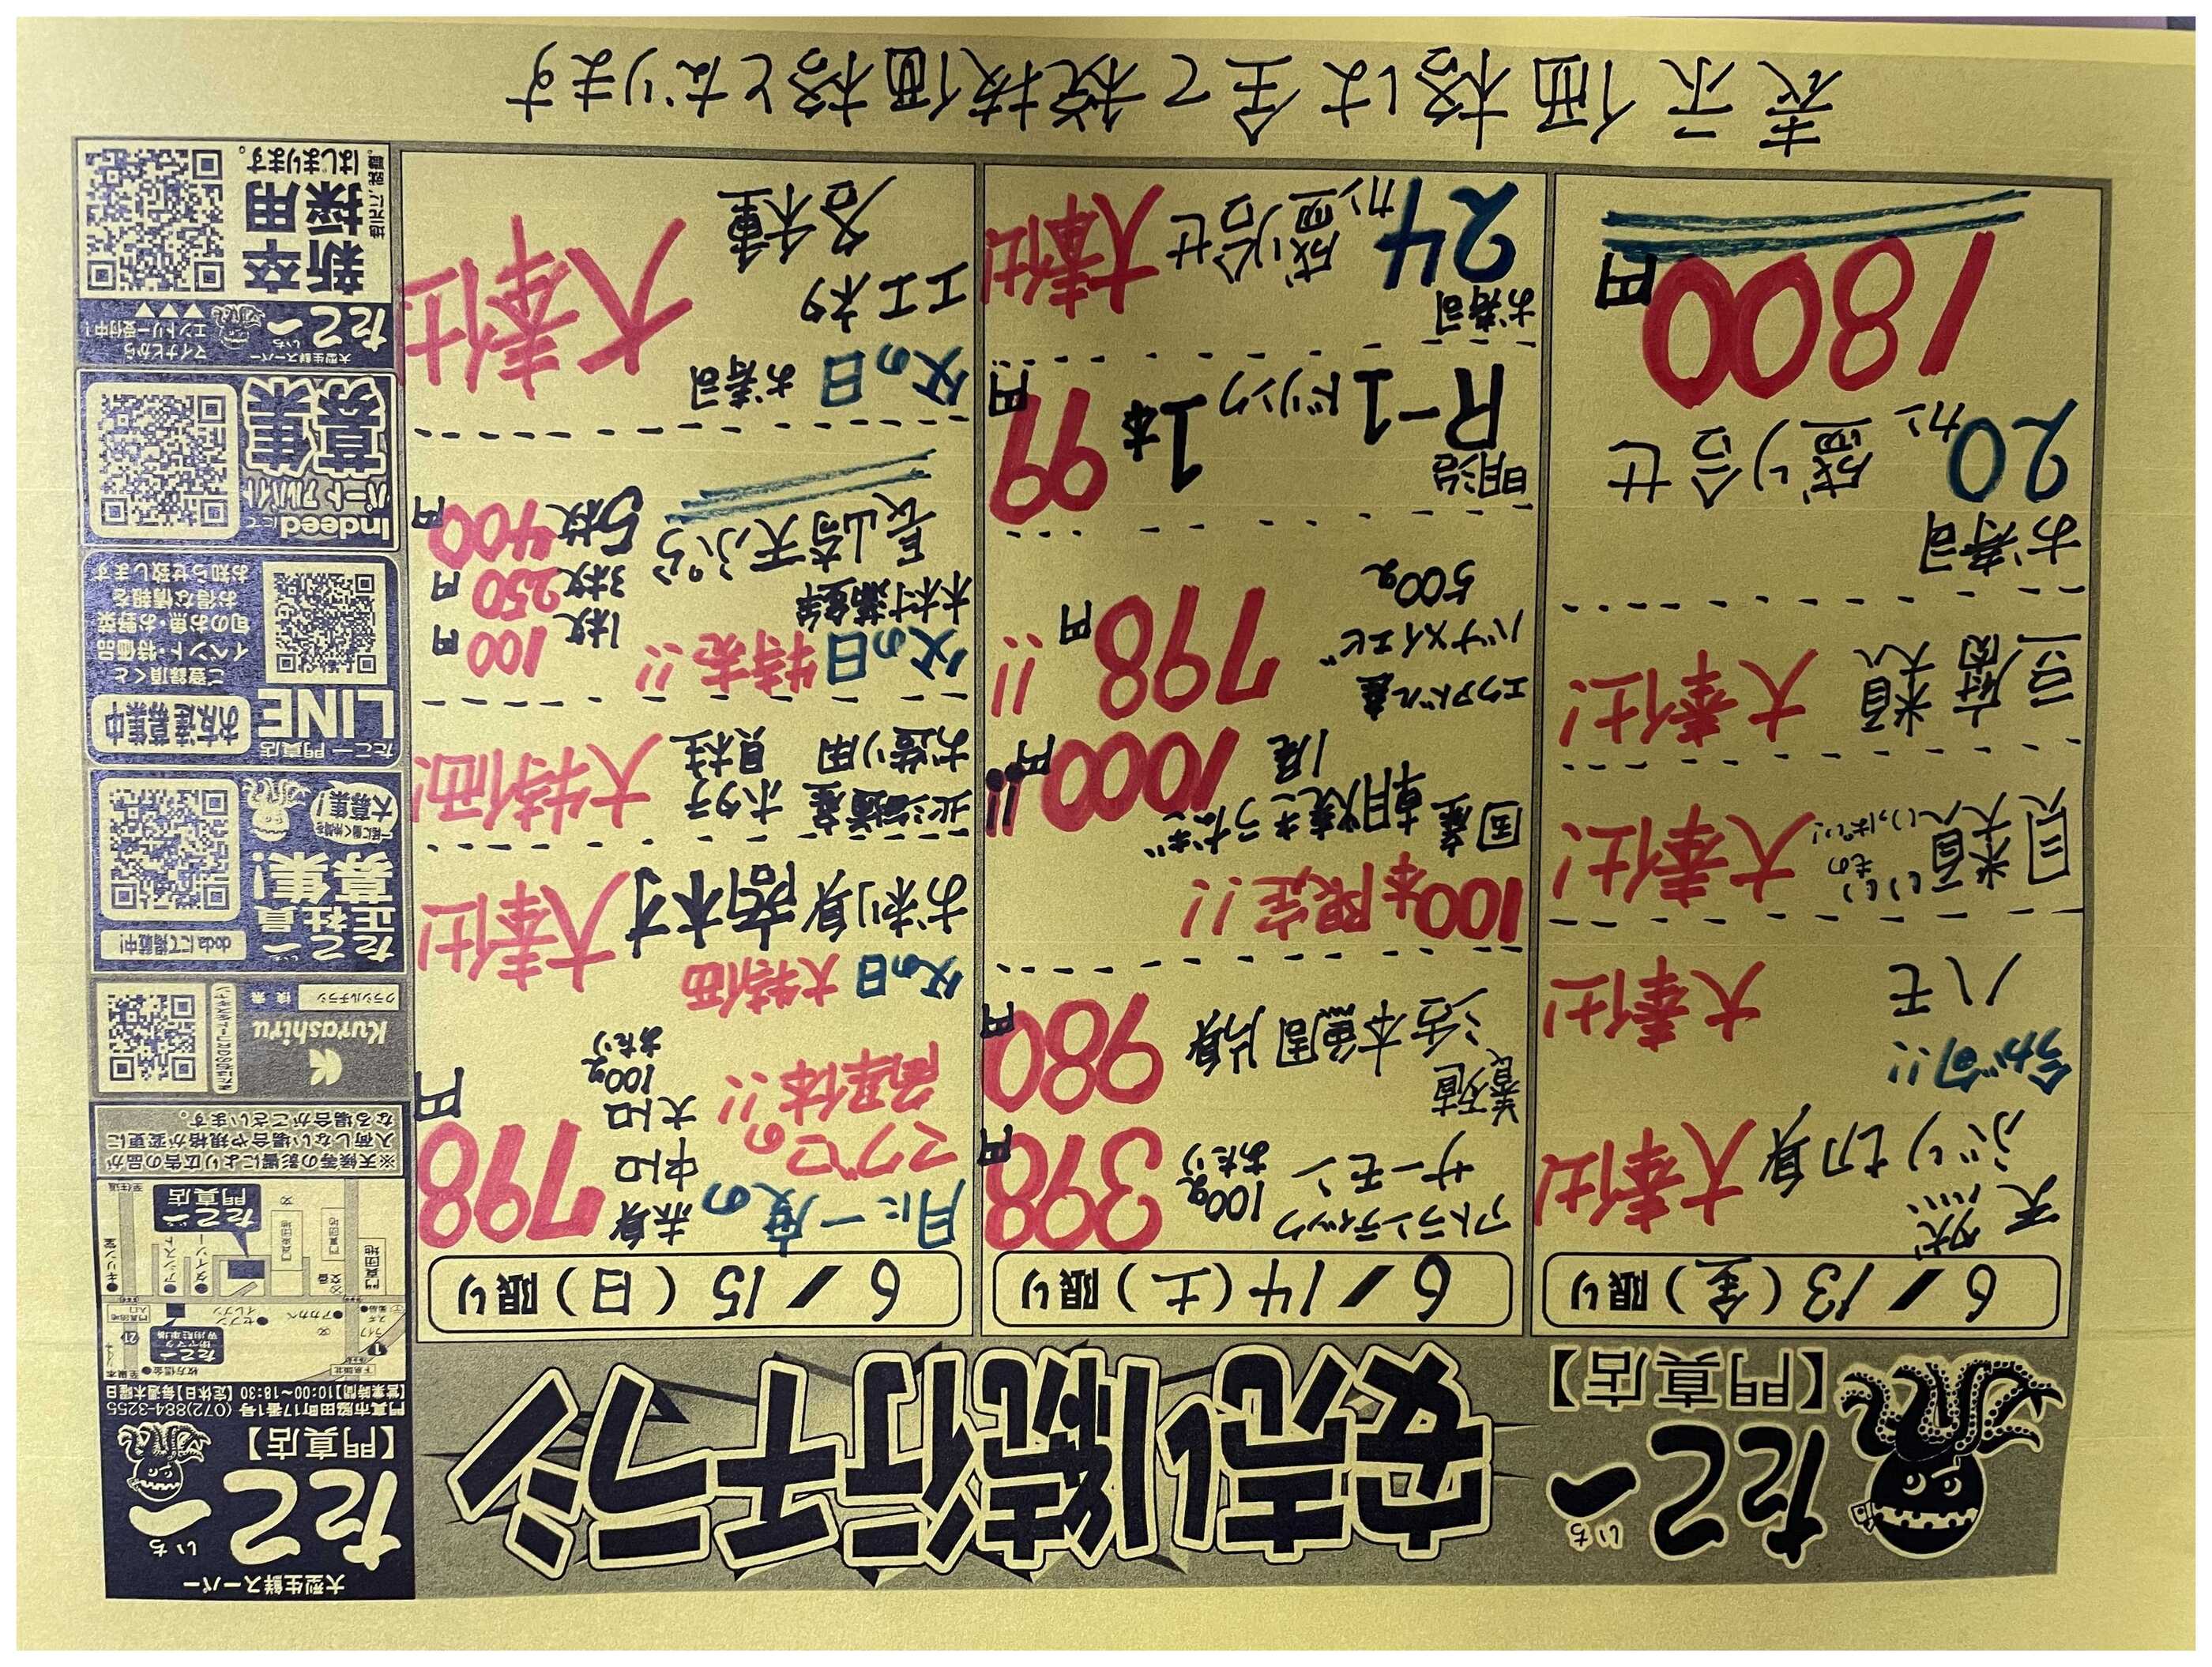 たこ一
いち
【門真店】
安売り流行チラシ
6/13(金)限り
天然
ぶり切身 大奉仕!
今が旬!!
ハモ 大奉仕!
尺目大
いいもの
いっぱい!
大奉仕!
豆腐類 大奉仕!
お寿司
20カン盛り合せ
1800円
6/14(土)限り
アトランティック
サーモン
100gあたり
398円
養殖
活〆本鮪
980円
100本限定!!
国産
朝焼きうなぎ
1尾
1000円!!
エクアドル産
バナメイエビ
500g
798円!!
明治
R-1ドリンク 1本 99円
お寿司
24カン盛り合せ 大奉仕!
6/15(日)限り
月に一度の
マグロの
解体!!
赤身
中トロ
大トロ
100gあたり
798円
父の日 大特価
お刺身 大奉仕!
北海道産 ホタテ
お造り用 貝柱
大特価!
父の日 特売!!
木村蒲鉾
長崎天ぷら
1枚 100円
3枚 250円
5枚 400円
父の日 お寿司
各種
大奉仕!
表示価格は全て税抜価格となります
大型生鮮スーパー
たこ一
いち
【門真店】
門真市脇田町17番1号 (072)884-3255
【営業時間】10:00~18:30 【定休日】毎週木曜日
たこ一
門真店
※天候等の影響により広告の品が
入荷しない場合や規格が変更に
なる場合がございます。
Kurashiru
クラシルチラシ 検索
dodaにて掲載中!
たこ一
正社員
募集!
一緒に働く仲間を
大募集!
たこ一 門真店
LINE お友達募集中
ご登録頂くと
イベント・特価品
旬のお魚・お野菜
お得な情報を
お知らせ致します
Indeedにて
パート アルバイト
募集
大型生鮮スーパー
たこ一
いち
マイナビから
エントリー受付中!
新卒
採用
はじまります。
地元に、就職。